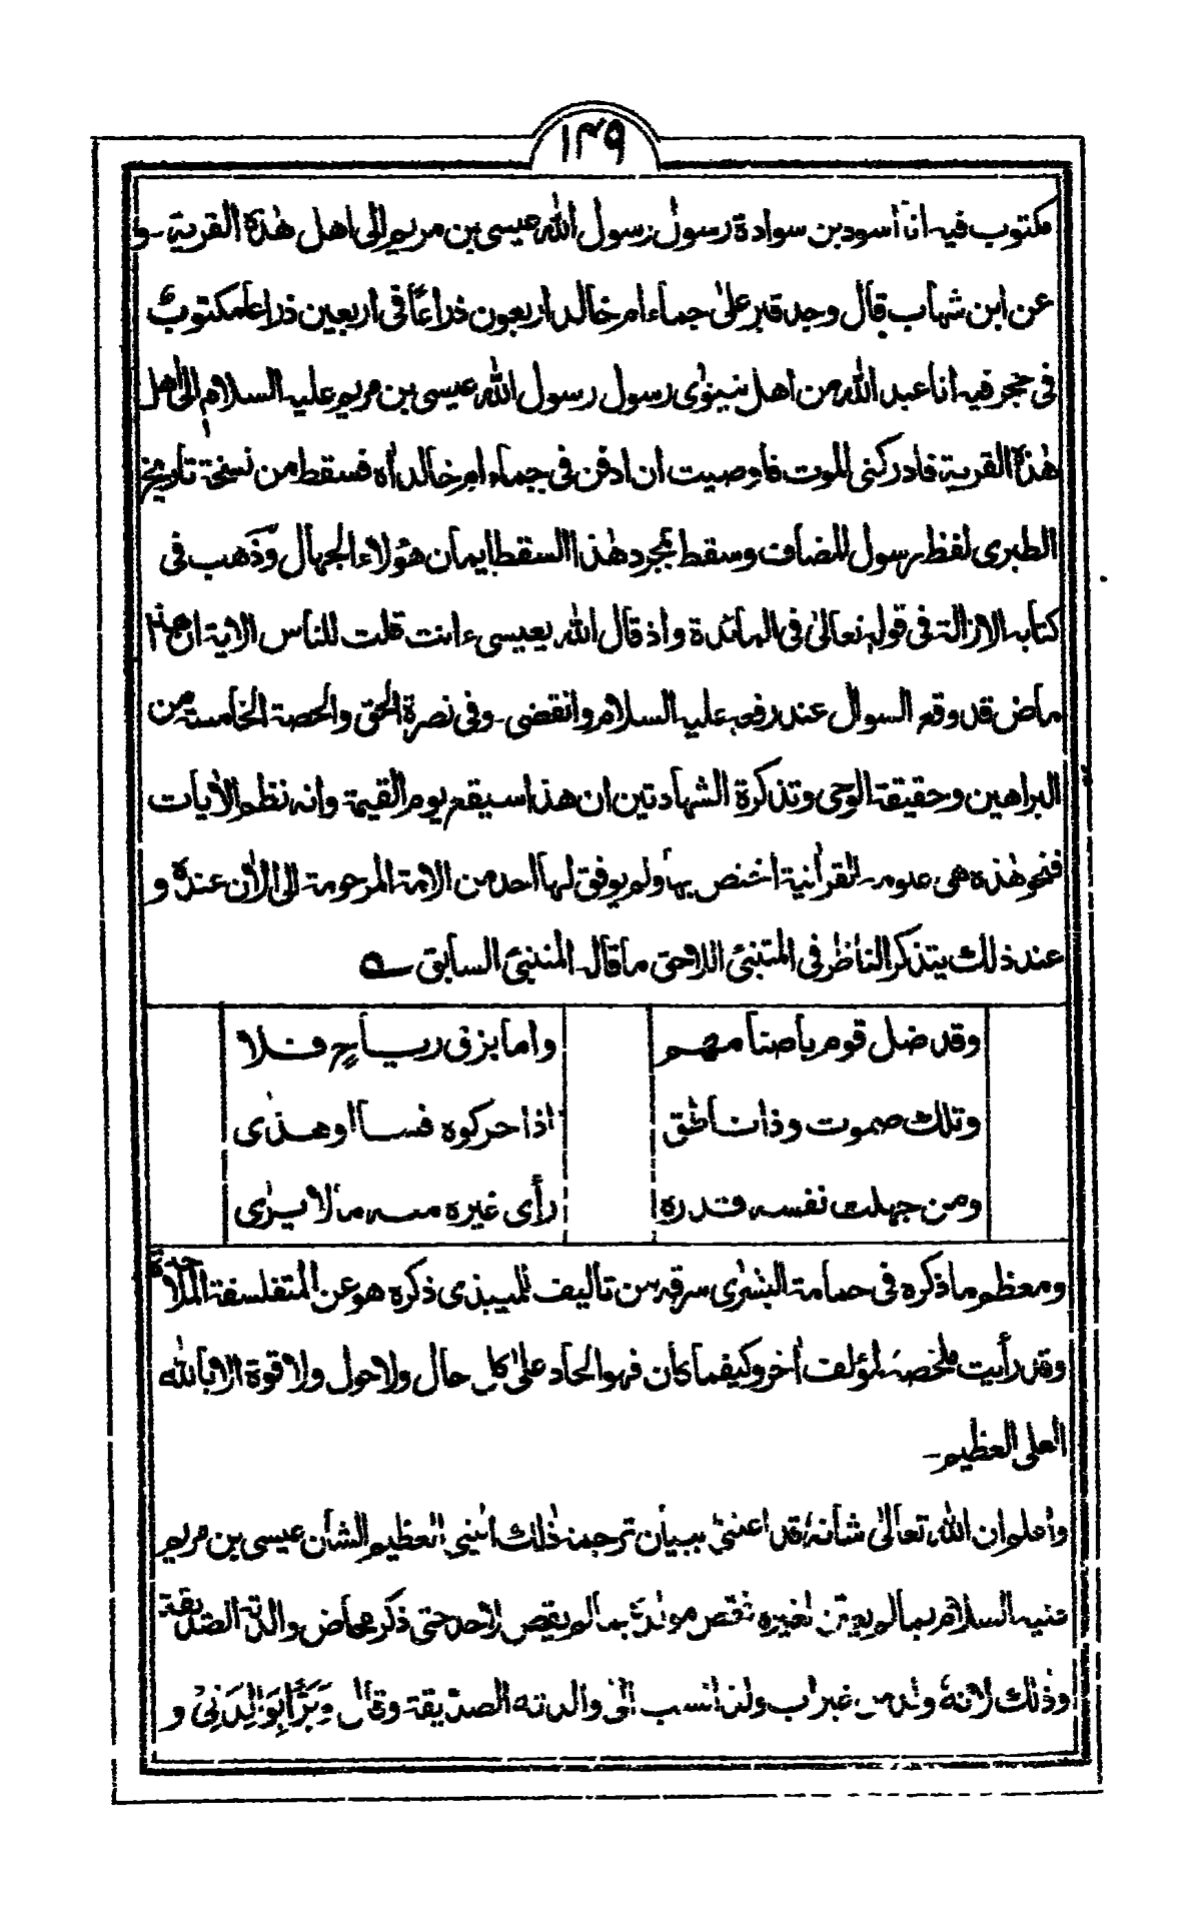 ١٤٩
مكتوب فيه انا اسود بن سوادة رسول رسول الله عيسى بن مريم الى اهل هذه القرية - و
عن ابن شهاب قال وجد قبر على جماء ام خالد اربعون ذراعًا فى اربعين ذراعا مكتوبٌ
فى حجر فيه انا عبد الله من اهل نينوٰى رسول رسول الله عيسى بن مريم عليه السلام الى اهل
هٰذه القرية فادركنى الموت فاوصيت ان ادفن فى جماء ام خالد اه فسقط من نسخة تاريخ
الطبرى لفظ رسول المضاف وسقط بمجرد هٰذا السقط ايمان هؤلاء الجهال وذهب فى
كتابه الازالة فى قوله تعالىٰ فى المائدة واذ قال الله يعيسى ءانت قلت للناس الاية ان هذا
ماض قد وقع السوال عند رفعه عليه السلام وانقضى - وفى نصرة الحق والحصة الخامسة من
البراهين وحقيقة الوحى وتذكرة الشهادتين ان هذا سيقع يوم القيمة وانه نظم الأيات
فنحو هٰذه هى علومه القرأنية اختص بها ولم يوفق لها احد من الامة المرحومة الى الاٰن عنده و
عند ذلك يتذكر الناظر فى المتنبئ اللاحق ما قال المتنبئ السابق ؎
وقد ضل قوم باصنامهم واما بزق رياحٍ فلا
وتلك صموت وذا ناطق اذا حركوه فسا او هذٰى
ومن جهلت نفسه قدره رأى غيره منه مالا يرٰى
ومعظم ما ذكره فى حمامة البشرٰى سرقه من تاليف للميبذى ذكره هو عن المتفلسفة الملاحدة
وقد رأيت ملخصه لمؤلف اٰخر وكيفما كان فهو الحاد علىٰ كل حال ولا حول ولا قوة الا بالله
العلى العظيم -
واعلم ان الله تعالىٰ شانه قد اعتنىٰ ببيان ترجمة ذٰلك النبى العظيم الشأن عيسى بن مريم
عليه السلام بما لم يعتن لغيره فقص مولده بما لم يقص لاحد حتى ذكر مخاض والدته الصديقة
وذٰلك لانهٗ ولد من غير اب ولذا انتسب الىٰ والدته الصدّيقة وقال وَبَرًّا بِوَالِدَتِيْ و